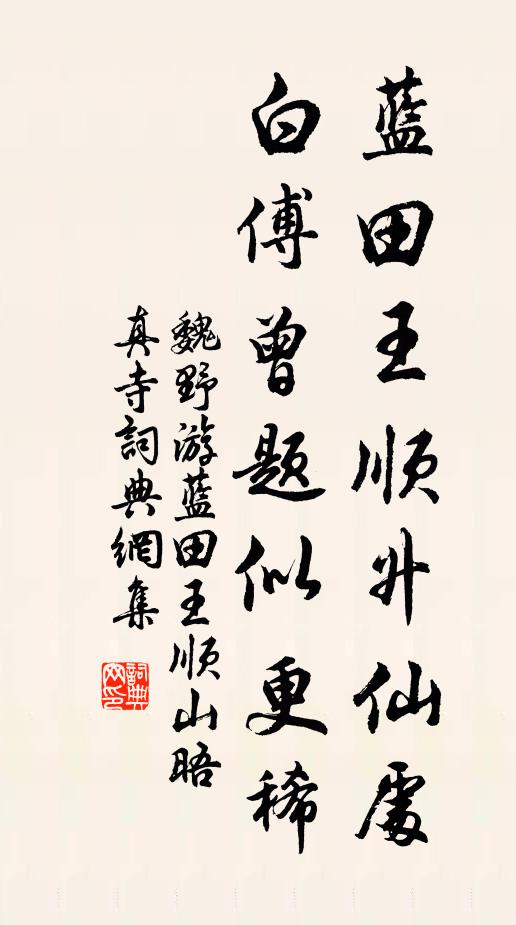 藍田王順升仙處
白傅曾題似更稀
魏野游藍田王順山晤
真寺詞典網集
詞典網印